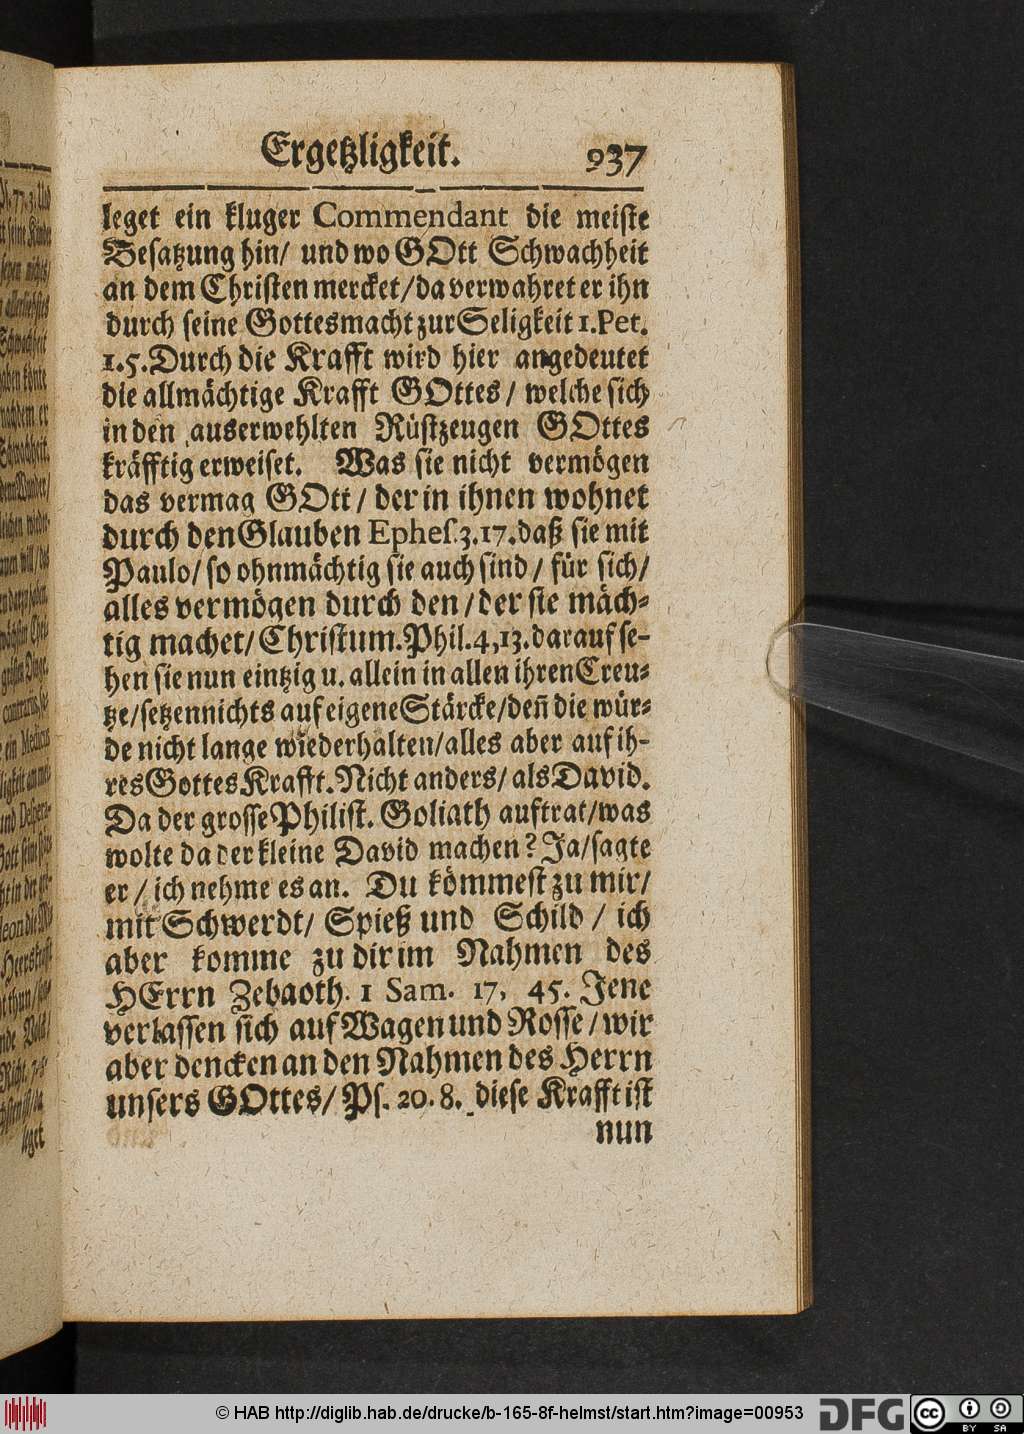 Ergetzligkeit. 937
leget ein kluger Commendant die meiste
Besatzung hin/ und wo GOtt Schwachheit
an dem Christen mercket/ da verwahret er ihn
durch seine Gottesmacht zur Seligkeit 1. Pet.
1. 5. Durch die Krafft wird hier angedeutet
die allmächtige Krafft GOttes / welche sich
in den auserwehlten Rüstzeugen GOttes
kräfftig erweiset. Was sie nicht vermögen
das vermag GOtt / der in ihnen wohnet
durch den Glauben Ephes. 3. 17. daß sie mit
Paulo/ so ohnmächtig sie auch sind / für sich/
alles vermögen durch den / der sie mäch-
tig machet/ Christum. Phil. 4, 13. darauf se-
hen sie nun eintzig u. allein in allen ihren Creu-
tze/ setzen nichts auf eigene Stärcke/ deñ die wür-
de nicht lange wiederhalten/ alles aber auf ih-
res Gottes Krafft. Nicht anders/ als David.
Da der grosse Philist. Goliath auftrat/ was
wolte da der kleine David machen? Ja/ sagte
er / ich nehme es an. Du kömmest zu mir/
mit Schwerdt/ Spieß und Schild / ich
aber komme zu dir im Nahmen des
HErrn Zebaoth. 1 Sam. 17, 45. Jene
verlassen sich auf Wagen und Rosse / wir
aber dencken an den Nahmen des Herrn
unsers GOttes/ Ps. 20. 8. diese Krafft ist
nun
© HAB http://diglib.hab.de/drucke/b-165-8f-helmst/start.htm?image=00953
DFG
cc BY SA